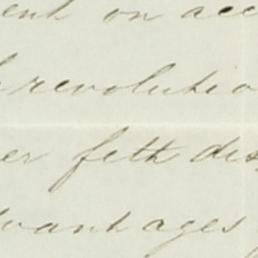 ent on acc
revolutio
er felt dis
vantages